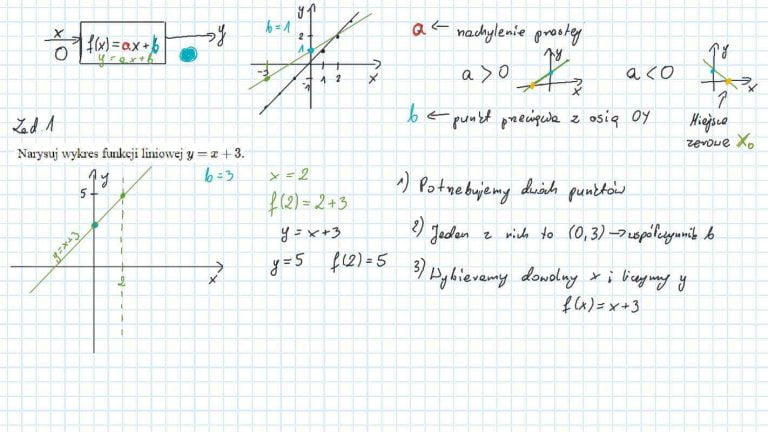 x
0
f(x) = ax + b
y = ax + b
y
b = 1
y
2
1
-3
-1
1 2
x
a ← nachylenie prostej
a > 0
y
x
a < 0
y
x
b ← punkt przecięcia z osią OY
Miejsce
zerowe x₀
Zad 1
Narysuj wykres funkcji liniowej y = x + 3.
y
5
b = 3
y = x+3
2
x
x = 2
f(2) = 2 + 3
y = x + 3
y = 5 f(2) = 5
1) Potrzebujemy dwóch punktów
2) Jeden z nich to (0, 3) → współczynnik b
3) Wybieramy dowolny x i liczymy y
f(x) = x + 3